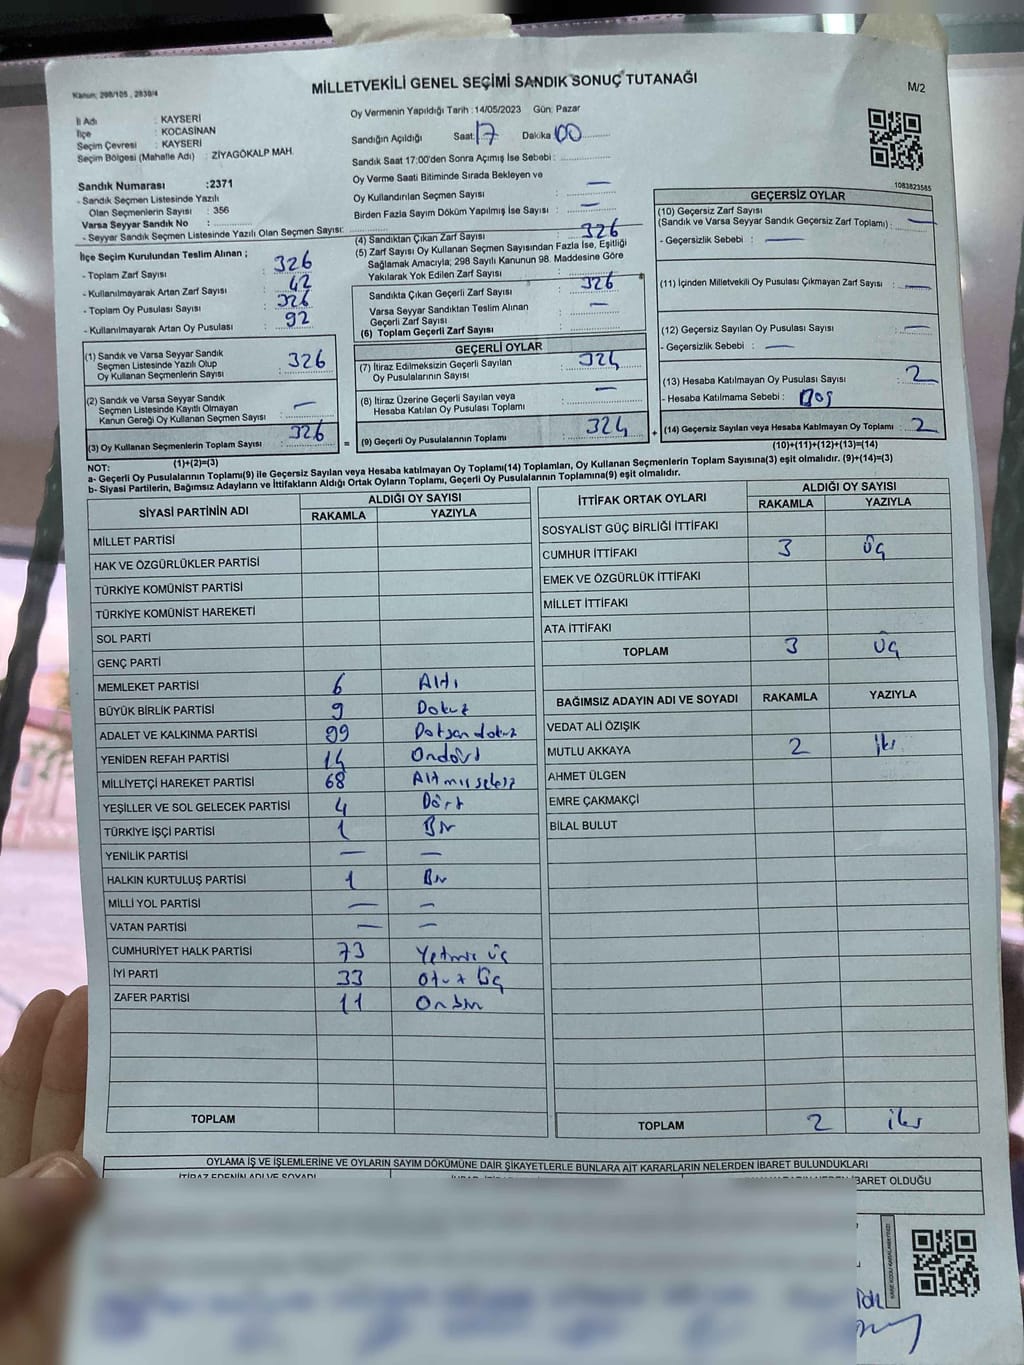 MİLLETVEKİLİ GENEL SEÇİMİ SANDIK SONUÇ TUTANAĞI
Kanun; 298/105 , 2839/4
M/2
İl Adı : KAYSERİ
İlçe : KOCASİNAN
Seçim Çevresi : KAYSERİ
Seçim Bölgesi (Mahalle Adı) : ZİYAGÖKALP MAH.
Sandık Numarası :2371
- Sandık Seçmen Listesinde Yazılı
Olan Seçmenlerin Sayısı : 356
Varsa Seyyar Sandık No :
- Seyyar Sandık Seçmen Listesinde Yazılı Olan Seçmen Sayısı:
Oy Vermenin Yapıldığı Tarih : 14/05/2023 Gün: Pazar
Sandığın Açıldığı Saat: 17 Dakika 00
Sandık Saat 17:00'den Sonra Açımış İse Sebebi :
Oy Verme Saati Bitiminde Sırada Bekleyen ve
Oy Kullandırılan Seçmen Sayısı : —
Birden Fazla Sayım Döküm Yapılmış İse Sayısı : —
1083823585
İlçe Seçim Kurulundan Teslim Alınan ;
- Toplam Zarf Sayısı : 326
- Kullanılmayarak Artan Zarf Sayısı : 42
- Toplam Oy Pusulası Sayısı : 326
- Kullanılmayarak Artan Oy Pusulası : 92
(1) Sandık ve Varsa Seyyar Sandık
Seçmen Listesinde Yazılı Olup
Oy Kullanan Seçmenlerin Sayısı : 326
(2) Sandık ve Varsa Seyyar Sandık
Seçmen Listesinde Kayıtlı Olmayan
Kanun Gereği Oy Kullanan Seçmen Sayısı : —
(3) Oy Kullanan Seçmenlerin Toplam Sayısı : 326
(1)+(2)=(3)
(4) Sandıktan Çıkan Zarf Sayısı : 326
(5) Zarf Sayısı Oy Kullanan Seçmen Sayısından Fazla İse, Eşitliği
Sağlamak Amacıyla; 298 Sayılı Kanunun 98. Maddesine Göre
Yakılarak Yok Edilen Zarf Sayısı :
Sandıkta Çıkan Geçerli Zarf Sayısı : 326
Varsa Seyyar Sandıktan Teslim Alınan
Geçerli Zarf Sayısı : —
(6) Toplam Geçerli Zarf Sayısı :
GEÇERLİ OYLAR
(7) İtiraz Edilmeksizin Geçerli Sayılan
Oy Pusulalarının Sayısı : 324
(8) İtiraz Üzerine Geçerli Sayılan veya
Hesaba Katılan Oy Pusulası Toplamı : —
= (9) Geçerli Oy Pusulalarının Toplamı : 324
GEÇERSİZ OYLAR
(10) Geçersiz Zarf Sayısı
(Sandık ve Varsa Seyyar Sandık Geçersiz Zarf Toplamı) : —
- Geçersizlik Sebebi : —
(11) İçinden Milletvekili Oy Pusulası Çıkmayan Zarf Sayısı : —
(12) Geçersiz Sayılan Oy Pusulası Sayısı : —
- Geçersizlik Sebebi : —
(13) Hesaba Katılmayan Oy Pusulası Sayısı : 2
- Hesaba Katılmama Sebebi : Boş
+ (14) Geçersiz Sayılan veya Hesaba Katılmayan Oy Toplamı : 2
(10)+(11)+(12)+(13)=(14)
NOT:
a- Geçerli Oy Pusulalarının Toplamı(9) ile Geçersiz Sayılan veya Hesaba katılmayan Oy Toplamı(14) Toplamları, Oy Kullanan Seçmenlerin Toplam Sayısına(3) eşit olmalıdır. (9)+(14)=(3)
b- Siyasi Partilerin, Bağımsız Adayların ve İttifakların Aldığı Ortak Oyların Toplamı, Geçerli Oy Pusulalarının Toplamına(9) eşit olmalıdır.
SİYASİ PARTİNİN ADI ALDIĞI OY SAYISI
RAKAMLA YAZIYLA
MİLLET PARTİSİ
HAK VE ÖZGÜRLÜKLER PARTİSİ
TÜRKİYE KOMÜNİST PARTİSİ
TÜRKİYE KOMÜNİST HAREKETİ
SOL PARTİ
GENÇ PARTİ
MEMLEKET PARTİSİ 6 Altı
BÜYÜK BİRLİK PARTİSİ 9 Dokuz
ADALET VE KALKINMA PARTİSİ 99 Doksan dokuz
YENİDEN REFAH PARTİSİ 14 Ondört
MİLLİYETÇİ HAREKET PARTİSİ 68 Altmış sekiz
YEŞİLLER VE SOL GELECEK PARTİSİ 4 Dört
TÜRKİYE İŞÇİ PARTİSİ 1 Bir
YENİLİK PARTİSİ — —
HALKIN KURTULUŞ PARTİSİ 1 Bir
MİLLİ YOL PARTİSİ — —
VATAN PARTİSİ — —
CUMHURİYET HALK PARTİSİ 73 Yetmiş üç
İYİ PARTİ 33 Otuz üç
ZAFER PARTİSİ 11 Onbir
TOPLAM
İTTİFAK ORTAK OYLARI ALDIĞI OY SAYISI
RAKAMLA YAZIYLA
SOSYALİST GÜÇ BİRLİĞİ İTTİFAKI
CUMHUR İTTİFAKI 3 üç
EMEK VE ÖZGÜRLÜK İTTİFAKI
MİLLET İTTİFAKI
ATA İTTİFAKI
TOPLAM 3 üç
BAĞIMSIZ ADAYIN ADI VE SOYADI RAKAMLA YAZIYLA
VEDAT ALİ ÖZIŞIK
MUTLU AKKAYA 2 iki
AHMET ÜLGEN
EMRE ÇAKMAKÇİ
BİLAL BULUT
TOPLAM 2 iki
OYLAMA İŞ VE İŞLEMLERİNE VE OYLARIN SAYIM DÖKÜMÜNE DAİR ŞİKAYETLERLE BUNLARA AİT KARARLARIN NELERDEN İBARET BULUNDUKLARI
İTİRAZ EDENİN ADI VE SOYADI
İBARET OLDUĞU